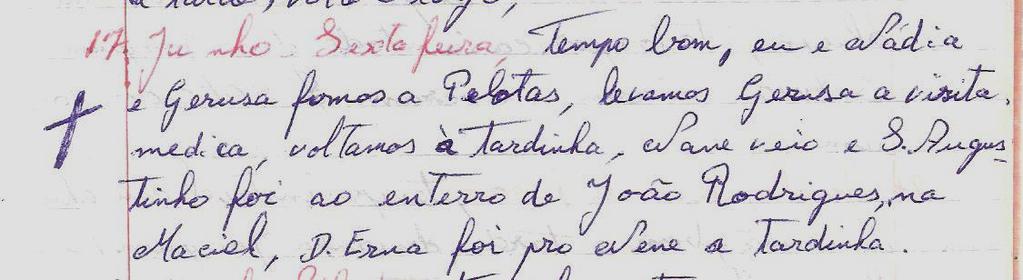 17 Junho Sexta feira, Tempo bom, eu e Nádia
e Gerusa fomos a Pelotas, levamos Gerusa a visita
medica, voltamos à tardinha, Nane veio e S. Augus-
tinho foi ao enterro de João Rodrigues, na
Maciel, D. Erna foi pro Nene a tardinha.